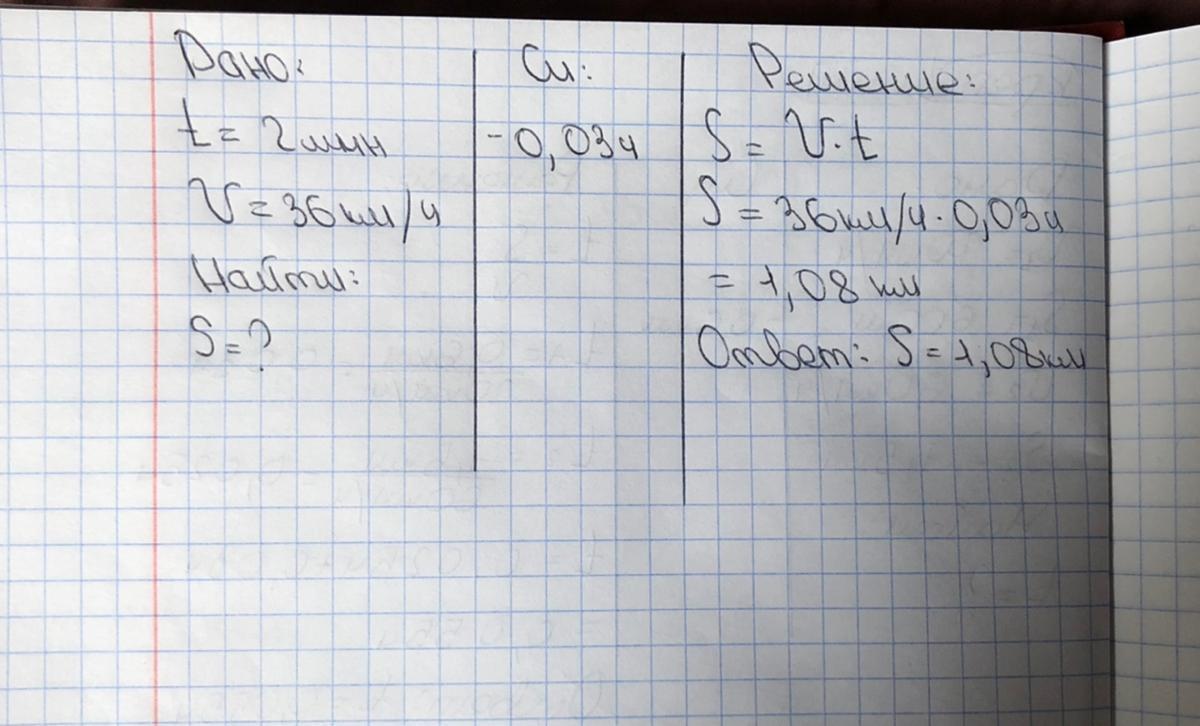 Дано:
t = 2 мин
V = 36 км/ч
Найти:
S = ?
Си:
- 0,03 ч
Решение:
S = V · t
S = 36 км/ч · 0,03 ч
= 1,08 км
Ответ: S = 1,08 км